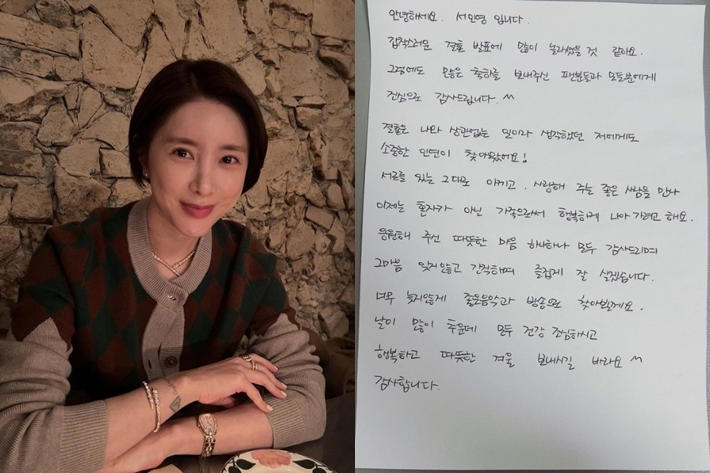 안녕하세요. 서인영 입니다.
갑작스러운 결혼 발표에 많이 놀라셨을 것 같아요.
그럼에도 많은 축하를 보내주신 팬분들과 모든분에게
진심으로 감사드립니다. ^^
결혼은 나와 상관없는 일이라 생각했던 저에게도
소중한 인연이 찾아왔어요!
서로를 있는 그대로 아끼고, 사랑해 주는 좋은 사람을 만나
이제는 혼자가 아닌 가족으로써 행복하게 나아가려고 해요.
응원해 주신 따뜻한 마음 하나하나 모두 감사드리며
그마음 잊지않고 간직하며 즐겁게 잘 살겠습니다.
너무 늦지않게 좋은음악과 방송으로 찾아뵐게요.
날이 많이 추운데 모두 건강 조심하시고
행복하고 따뜻한 겨울 보내시길 바라요 ^^
감사합니다.